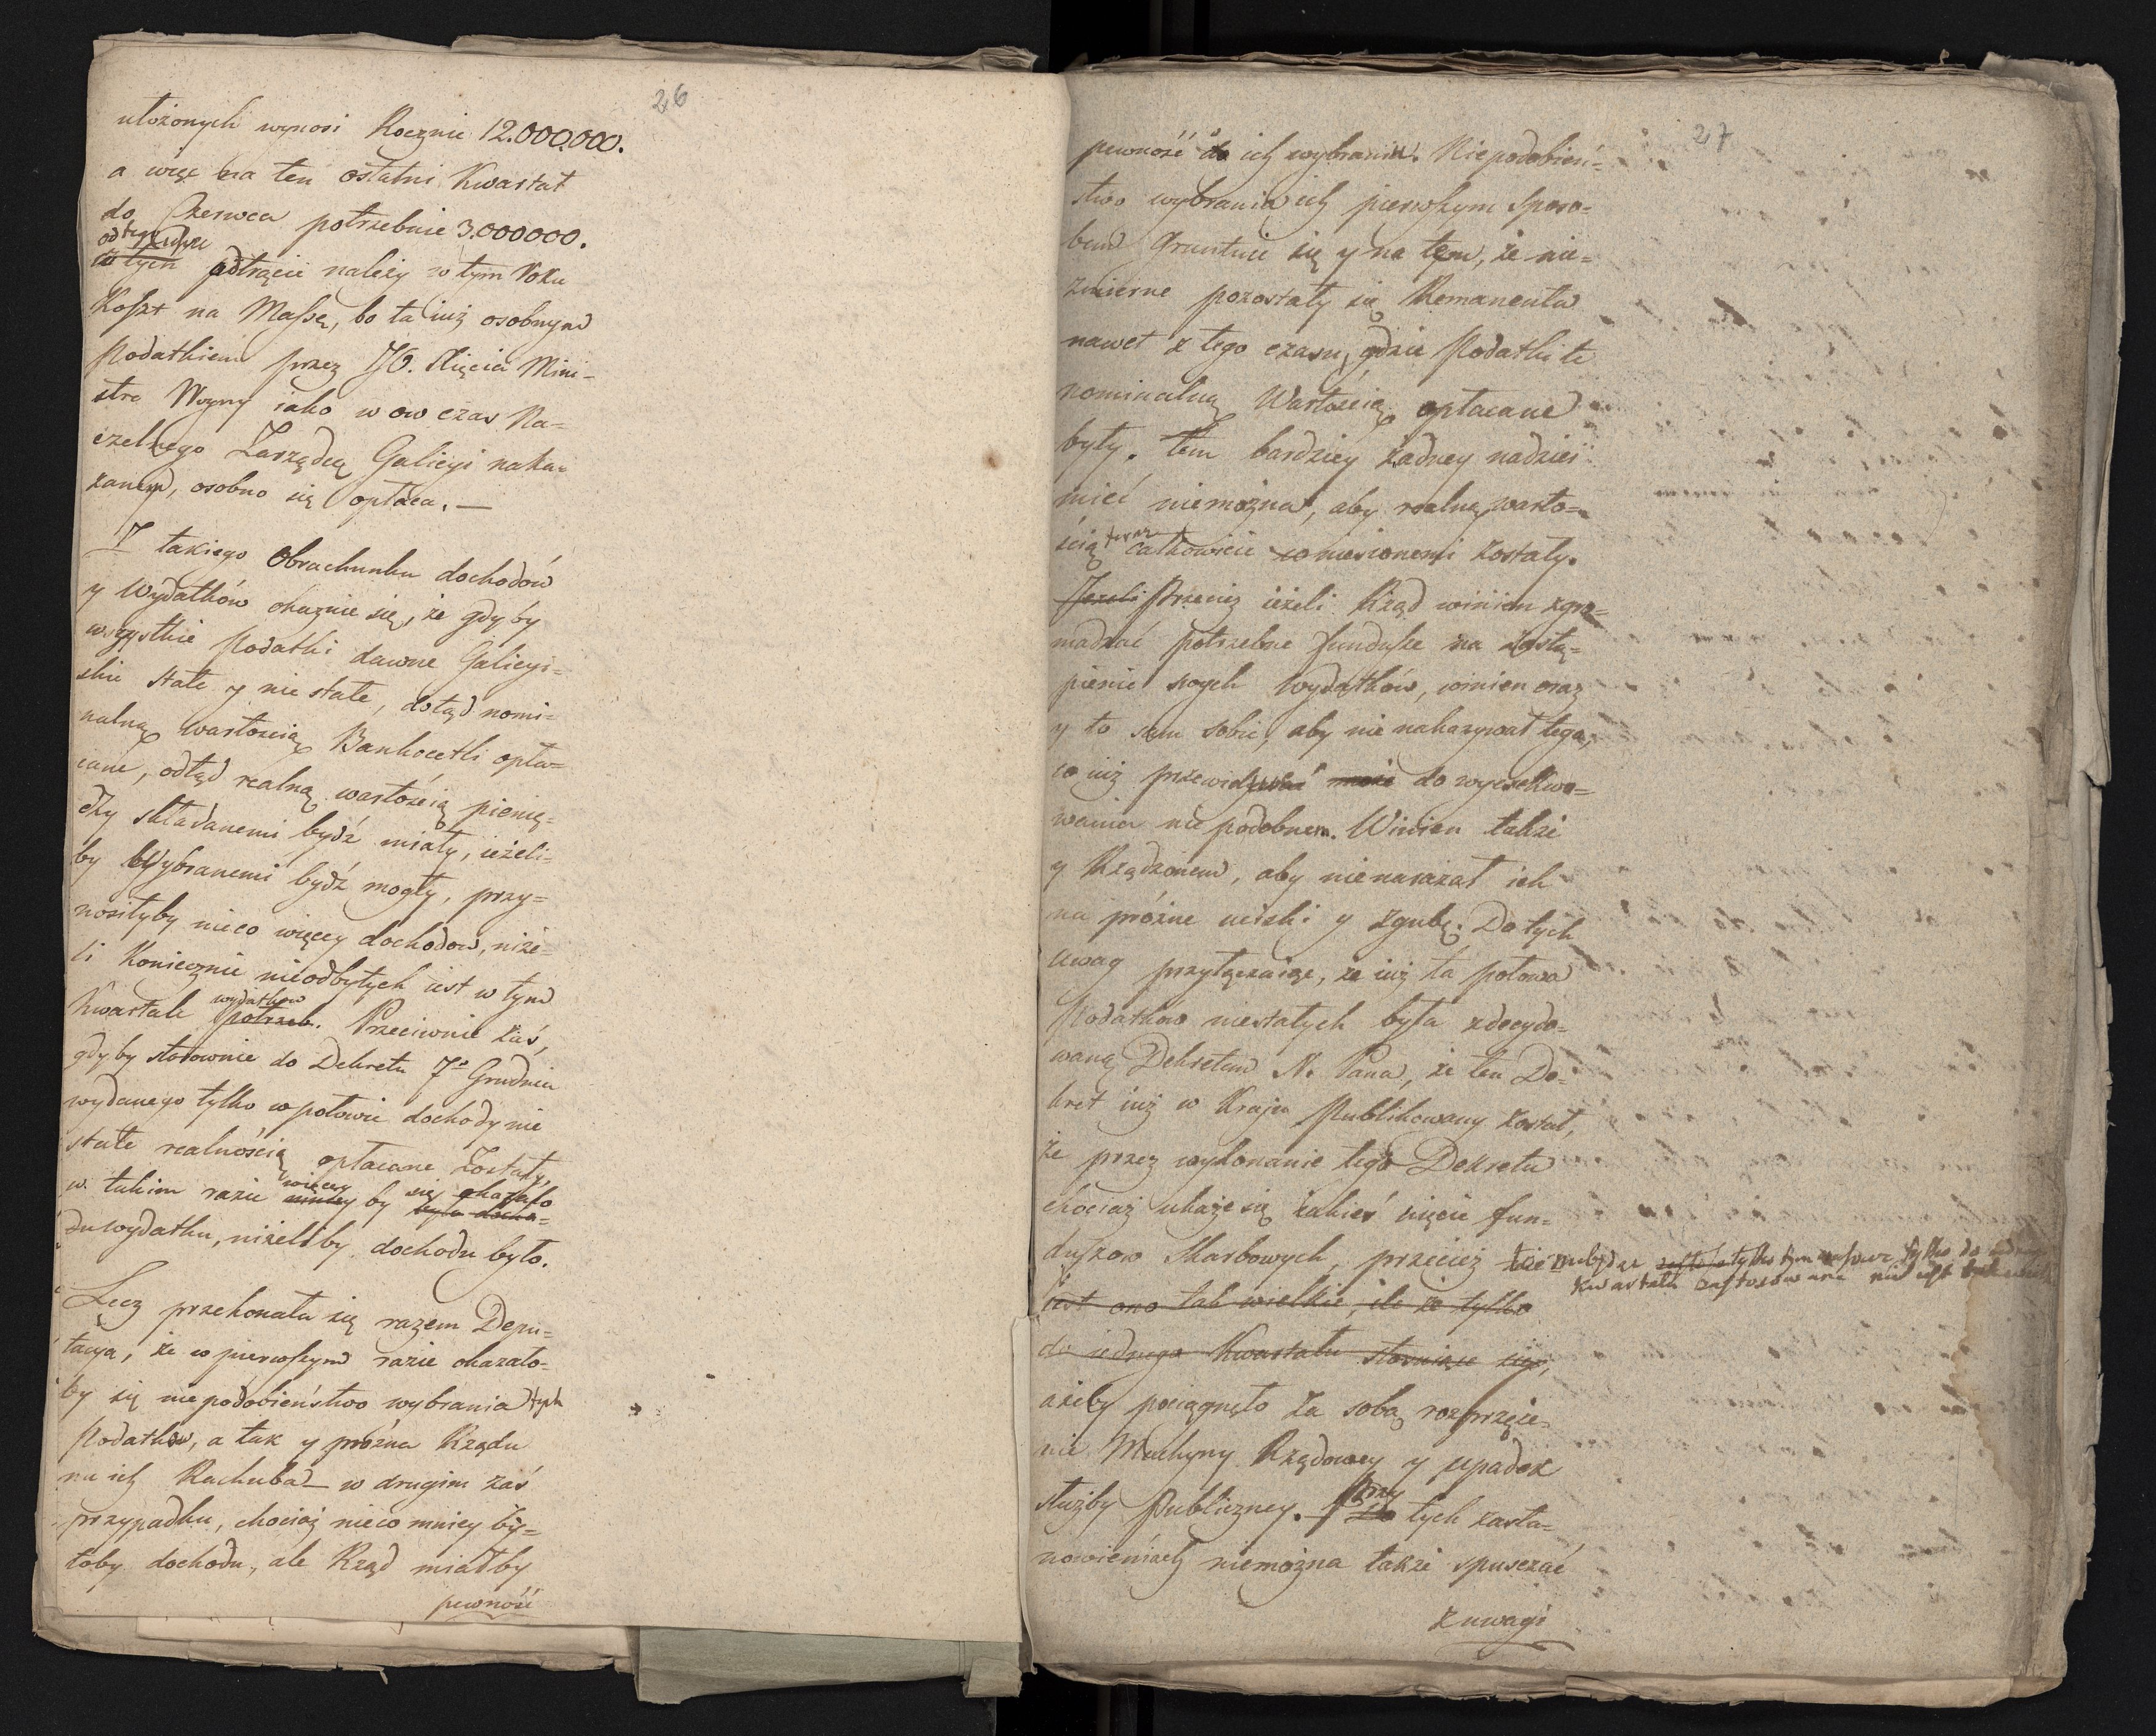 26
ułożonych wynosi Rocznie 12.000.000.
a więc na ten ostatni Kwartał
do Czerwca potrzebnie 3.000000.
od tego
w tych odtrącić należy w tym Roku
Koszt na Massę, bo ta iuż osobnym
Podatkiem przez JO. Xięcia Mini-
stra Woyny iako w ow czas Na-
czelnego Zarządcę Galicyi naka-
zanem, osobno się opłaca. —
Z takiego Obrachunku dochodów
y Wydatków okazuie się, że gdyby
wszystkie Podatki dawne Galicyi-
skie stałe y nie stałe, dotąd nomi-
nalną wartością Bankocetli opła-
cane, odtąd realną wartością pienię-
dzy składanemi bydź miały, ieżeli-
by Wybranemi bydź mogły, przy-
nosiłyby nieco więcey dochodow, niże-
li Koniecznie nieodbytych iest w tym
wydatkow
Kwartale potrzeb. Przeciwnie zaś,
gdyby stosownie do Dekretu 7º Grudnia
wydanego tylko w połowie dochody nie
stałe realnością opłacane zostały,
więcey się okazało
w takim razie mniey by było docho-
du wydatku, niżeliby dochodu było.
Lecz przekonała się razem Depu-
tacya, że w pierwszym razie okazało-
by się niepodobieństwo wybrania tych
Podatków, a tak y próżna Rządu
na ich Rachuba — w drugim zaś
przypadku, chociaż nieco mniey by-
łoby dochodu, ale Rząd miałby
pewność
27
pewność do ich wybrania. Niepodobień-
stwo wybrania ich pierwszym sposo-
bem Gruntuie się y na tem, że nie-
zmierne pozostały się Remanenta
nawet z tego czasu, gdzie Podatki te
nominalną Wartością opłacane
były. tem bardziey żadney nadziei
mieć niemożna, aby realną warto-
teraz
ścią całkowicie wniesionemi zostały.
Jezeli Przeciż ieżeli Rząd winien zgro-
madzać potrzebne fundusze na zastą-
pienie swych Wydatków, winien oraz
y to sam sobie, aby nie nakazywał tego,
co iuż przewidywać może do wyexekwo-
wania nie podobnem. Winien także
y Rządzonem, aby nienarażał ich
na próżne uciski y zgubę. Do tych
uwag przyłączaiąc, że iuż ta połowa
Podatkow niestałych była zdecydo-
waną Dekretem N. Pana, że ten De-
kret iuż w Kraju Publikowany został,
że przez wykonanie tego Dekretu
chociaż ukaże się iakieś uięcie fun-
duszow Skarbowych, przecież nie będąc tylko tymczasowe tylko do iednego
kwartału zastosowane nie iest tak wielkie
iest ono tak wielkie, ile że tylko
do iednego Kwartału stosuiące się,
ażeby pociągnęło za sobą rozprzęże-
nie Machyny Rządowey y upadek
Przy
służby Publiczney. Do tych zasta-
nowieniach niemożna także spuszczać
z uwagi